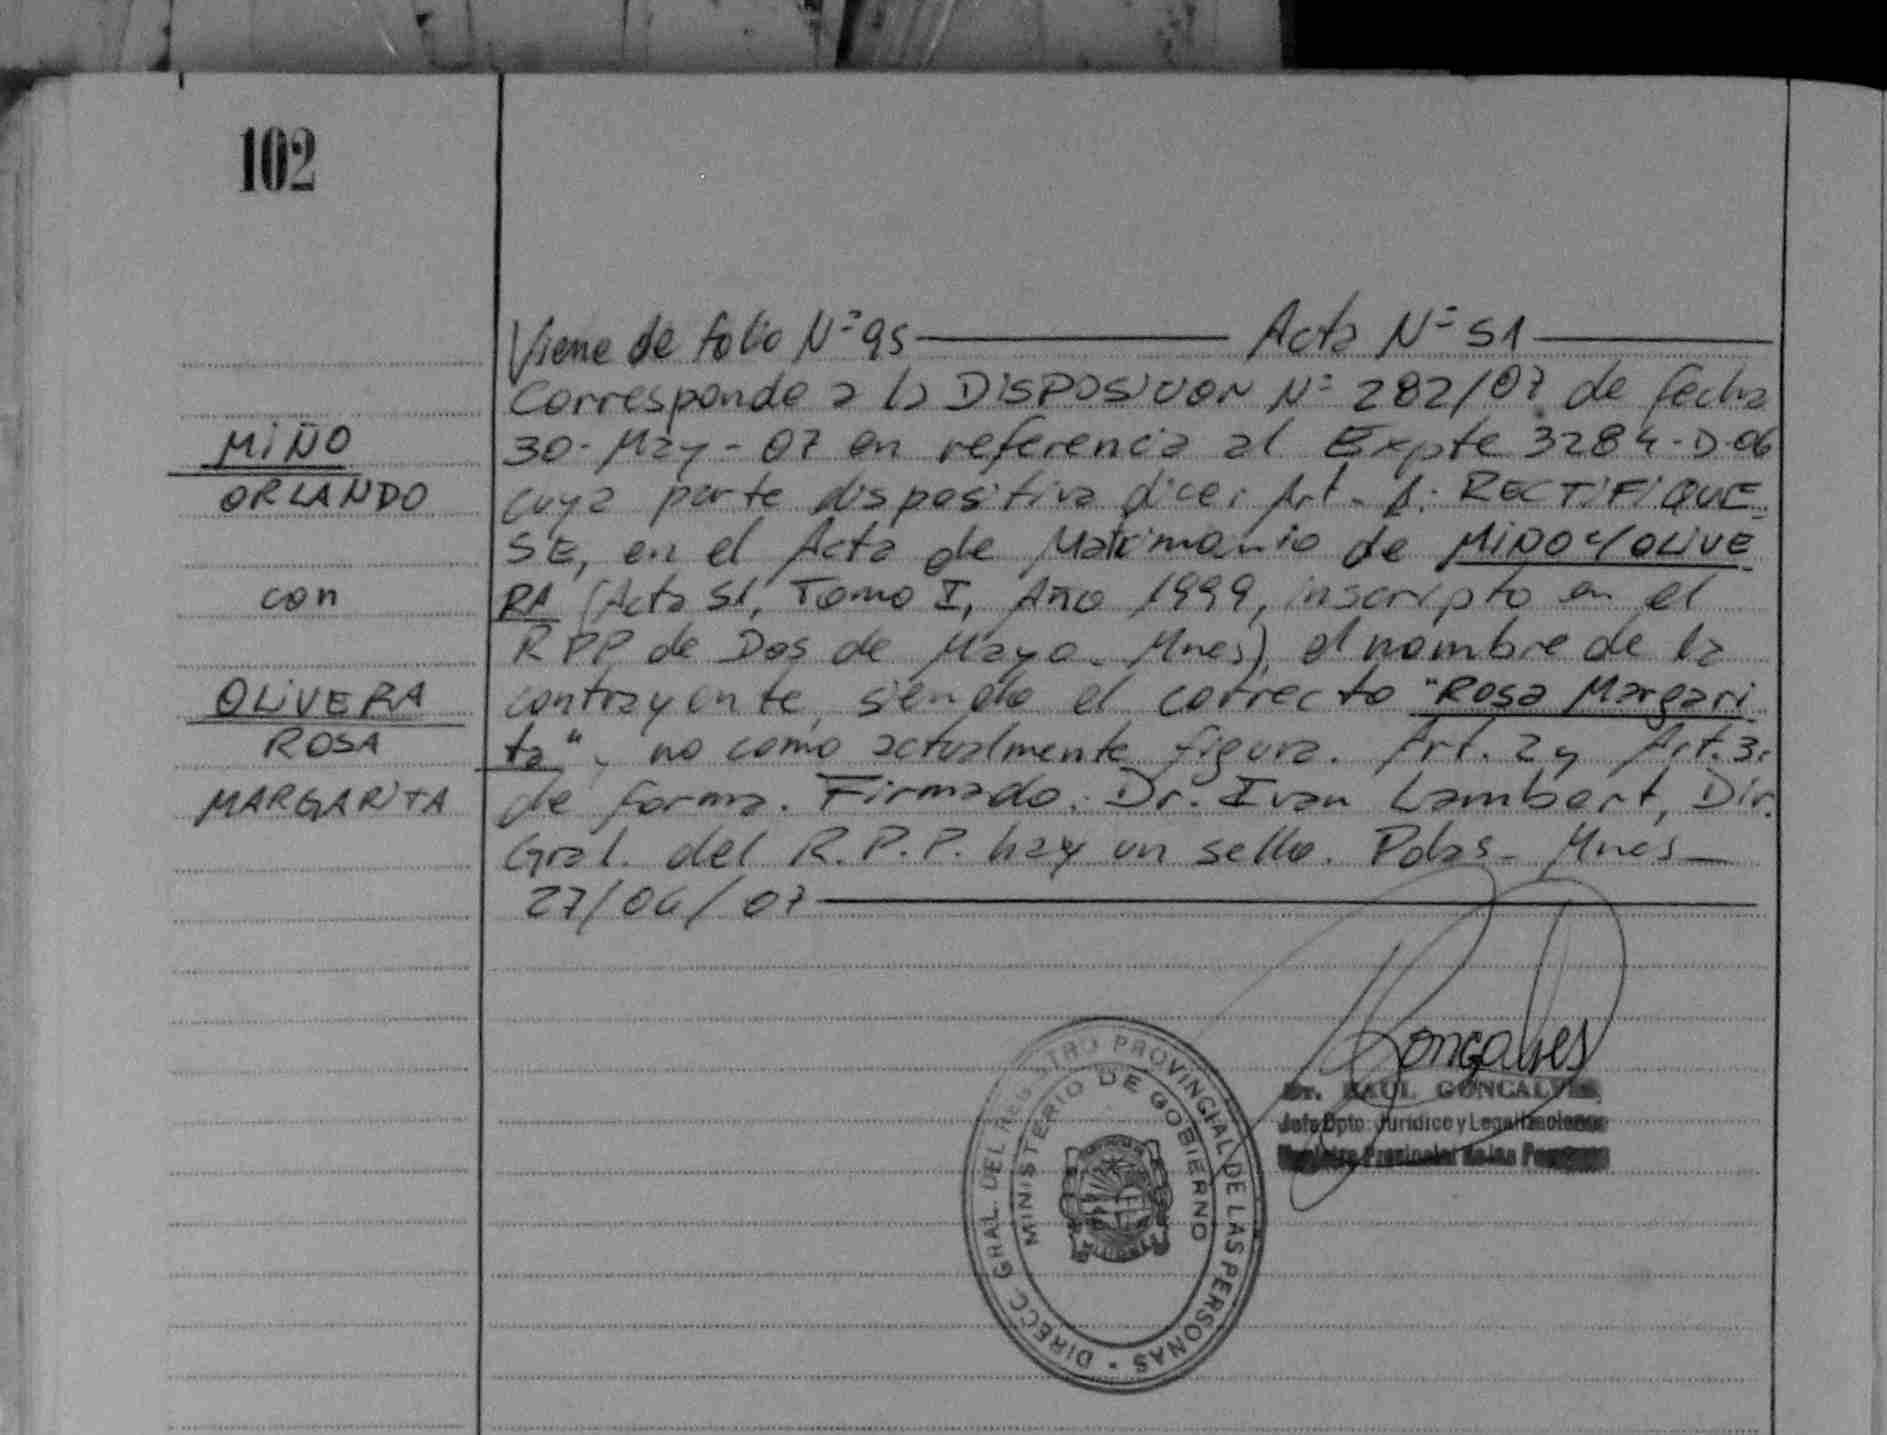 102
Viene de folio Nº 95 — Acta Nº 51 —
Corresponde a la DISPOSICION Nº 282/07 de fecha
30-May-07 en referencia al Expte 3284-D-06
cuya parte dispositiva dice: Art. 1: RECTIFIQUE
SE, en el Acta de Matrimonio de MIÑO Y OLIVE
RA (Acta 51, Tomo I, Año 1999, inscripto en el
RPP de Dos de Mayo. Mnes), el nombre de la
contrayente, siendo el correcto "Rosa Margari
ta", no como actualmente figura. Art. 2 y Art. 3:
de forma. Firmado: Dr. Ivan Lambert, Dir.
Gral. del R.P.P. hay un sello. Pdas- Mnes —
27/06/07 —
MIÑO
ORLANDO
con
OLIVERA
ROSA
MARGARITA
Goncalves
Dr. RAUL GONCALVES
Jefe Dpto. Jurídico y Legalizaciones
Registro Provincial de las Personas
DIRECC. GRAL. DEL REGISTRO PROVINCIAL DE LAS PERSONAS
MINISTERIO DE GOBIERNO
MISIONES